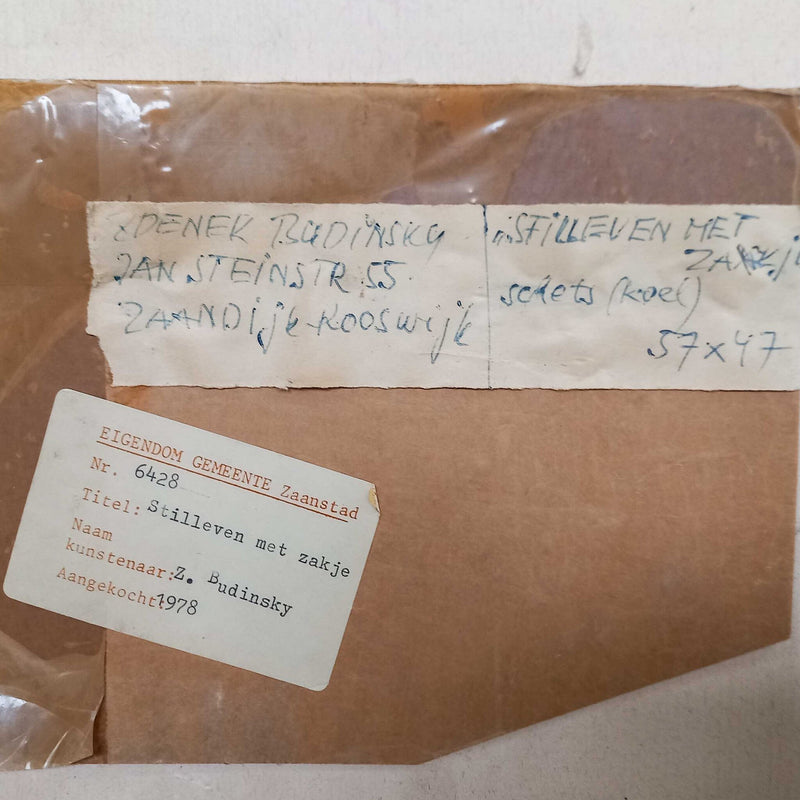 ZDENEK BUDINSKY
JAN STEINSTR 55
ZAANDijk-KOOSWijk
"STILLEVEN MET
schets (koei)
57x47
EIGENDOM GEMEENTE Zaanstad
Nr. 6428
Titel: Stilleven met zakje
Naam
kunstenaar: Z. Budinsky
Aangekocht: 1978